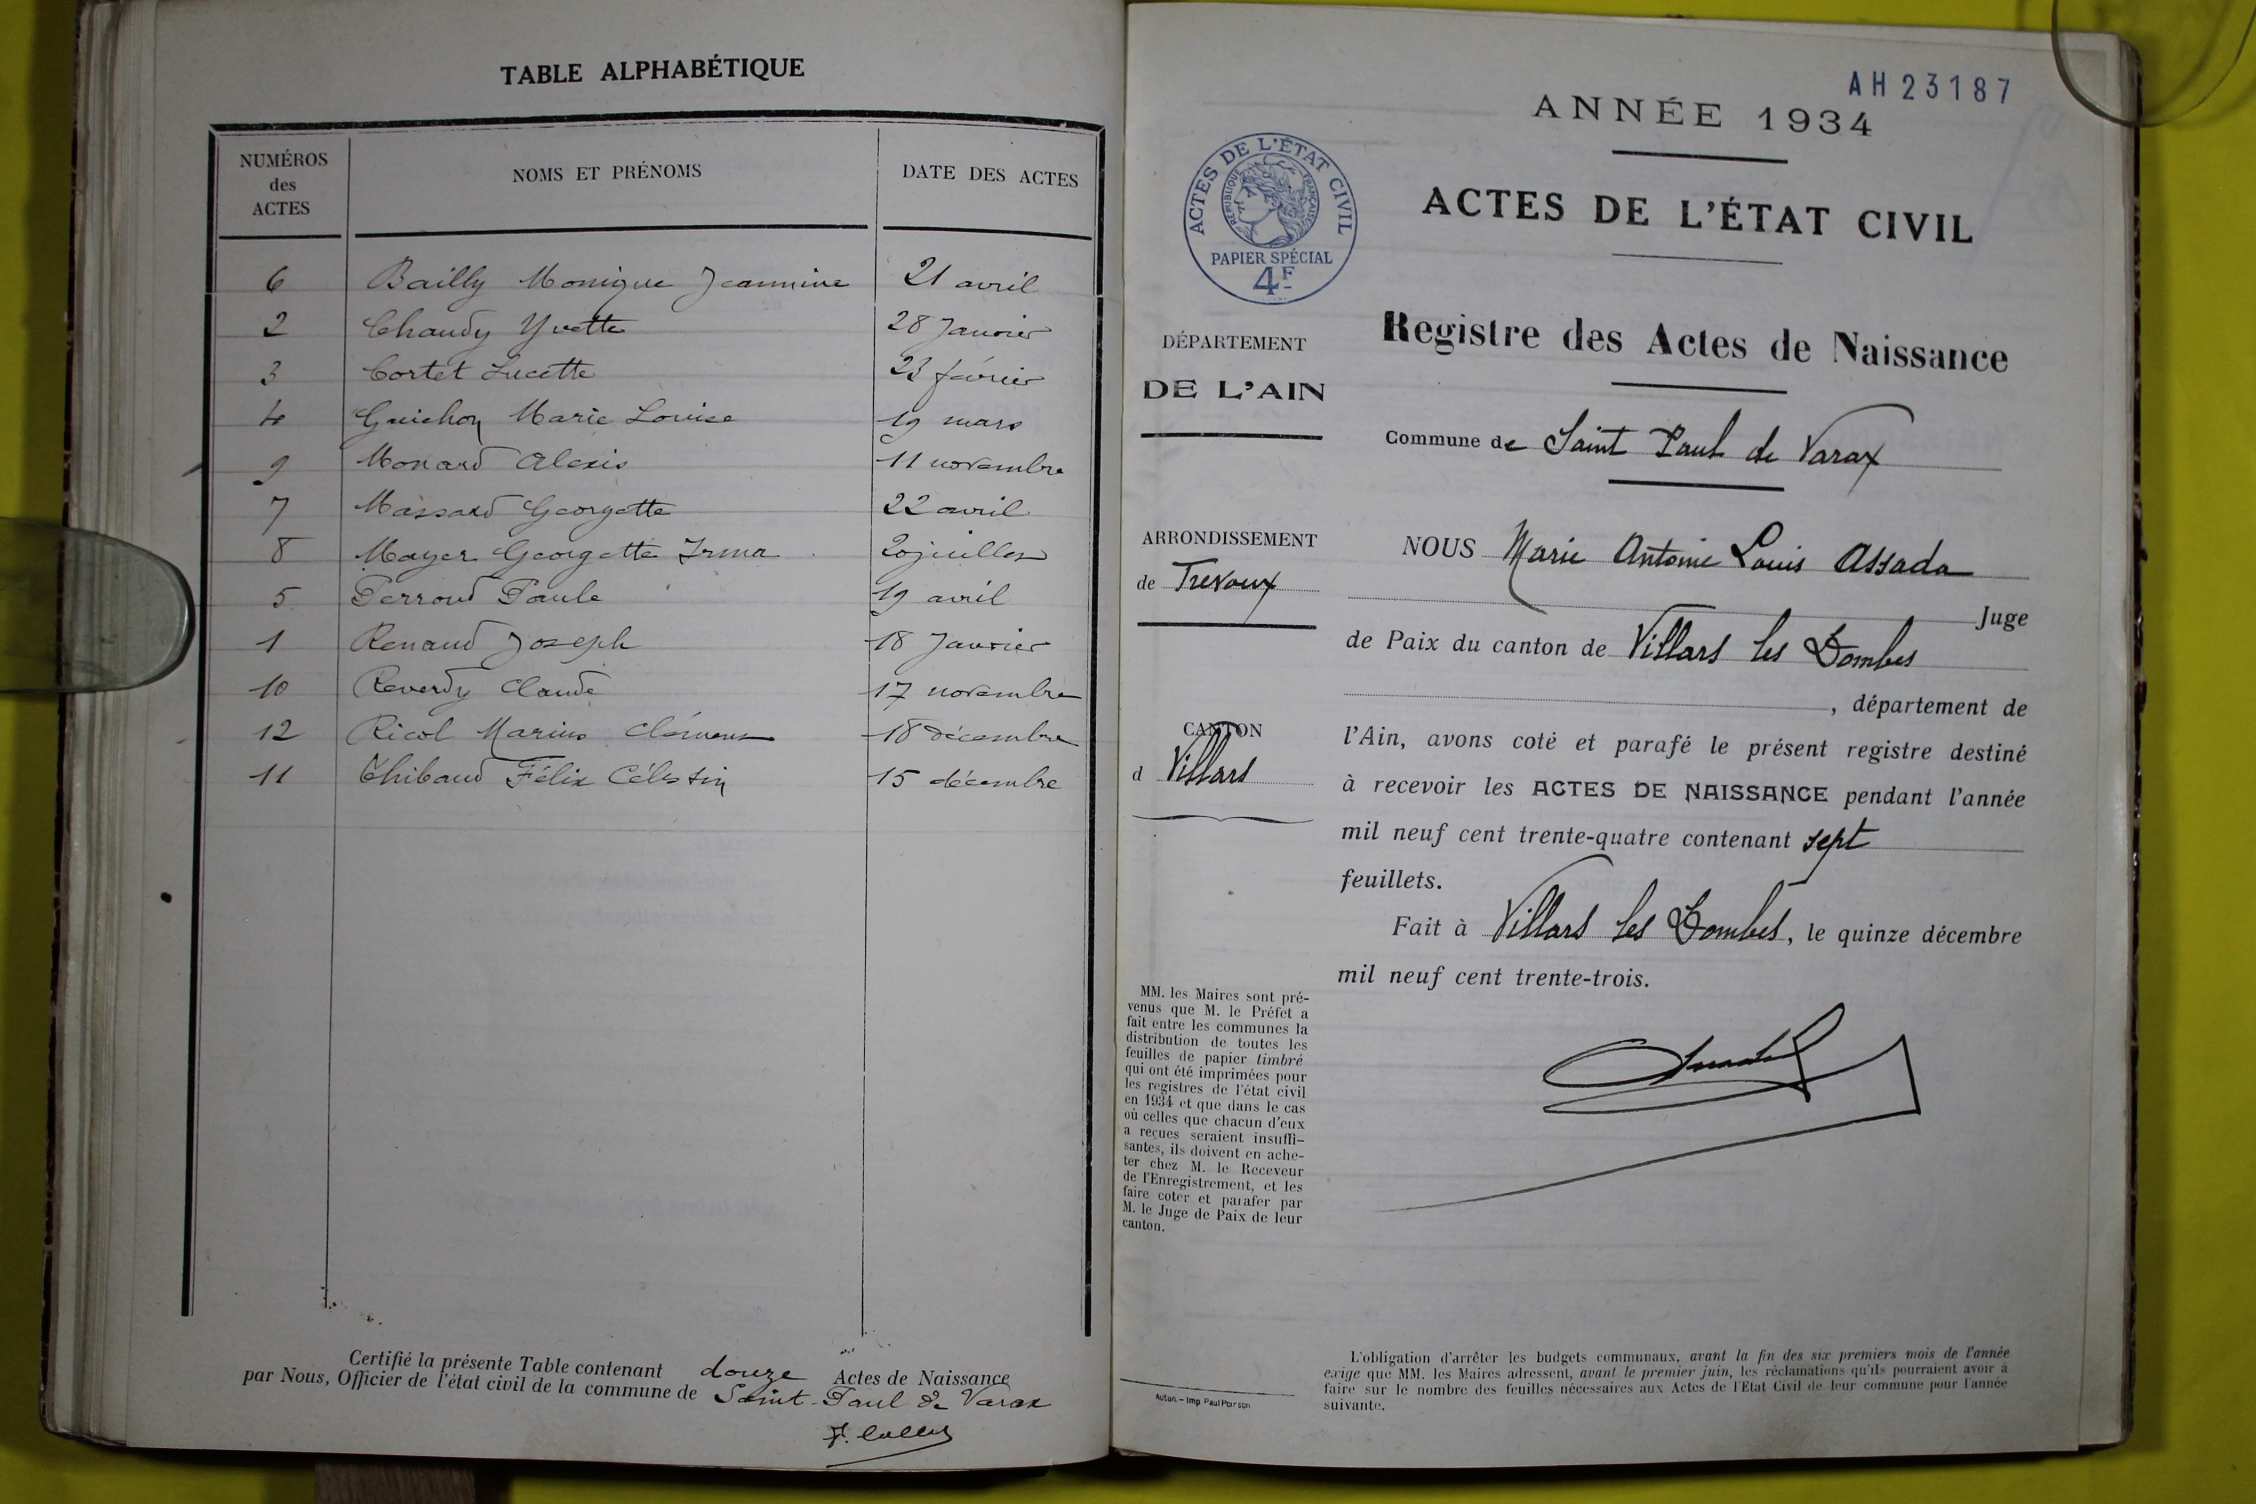 TABLE ALPHABÉTIQUE
NUMÉROS des ACTES NOMS ET PRÉNOMS DATE DES ACTES
6 Bailly Monique Jeannine 21 avril
2 Chaudy Yvette 28 Janvier
3 Cortet Lucette 23 février
4 Guichon Marie Louise 19 mars
9 Monard Alexis 11 novembre
7 Massard Georgette 22 avril
8 Mayer Georgette Irma 20 juillet
5 Perroud Paule 19 avril
1 Renaud Joseph 18 Janvier
10 Reverdy Claude 17 novembre
12 Ricol Marius Clément 18 décembre
11 Thibaud Félix Célestin 15 décembre
Certifié la présente Table contenant douze Actes de Naissance
par Nous, Officier de l'état civil de la commune de Saint-Paul de Varax
AH 23187
ANNÉE 1934
ACTES DE L'ÉTAT CIVIL
ACTES DE L'ÉTAT CIVIL
RÉPUBLIQUE FRANÇAISE
PAPIER SPÉCIAL
4F
Registre des Actes de Naissance
DÉPARTEMENT
DE L'AIN
Commune de Saint Paul de Varax
ARRONDISSEMENT
de Trevoux
CANTON
d Villars
NOUS Marie Antoine Louis Assada
Juge
de Paix du canton de Villars les Dombes
, département de
l'Ain, avons coté et parafé le présent registre destiné
à recevoir les ACTES DE NAISSANCE pendant l'année
mil neuf cent trente-quatre contenant sept
feuillets.
Fait à Villars les Dombes, le quinze décembre
mil neuf cent trente-trois.
MM. les Maires sont pré-
venus que M. le Préfet a
fait entre les communes la
distribution de toutes les
feuilles de papier timbré
qui ont été imprimées pour
les registres de l'état civil
en 1934 et que dans le cas
où celles que chacun d'eux
a reçues seraient insuffi-
santes, ils doivent en ache-
ter chez M. le Receveur
de l'Enregistrement, et les
faire coter et parafer par
M. le Juge de Paix de leur
canton.
Autun. – Imp. Paul Poirson
L'obligation d'arrêter les budgets communaux, avant la fin des six premiers mois de l'année
exige que MM. les Maires adressent, avant le premier juin, les réclamations qu'ils pourraient avoir à
faire sur le nombre des feuilles nécessaires aux Actes de l'Etat Civil de leur commune pour l'année
suivante.